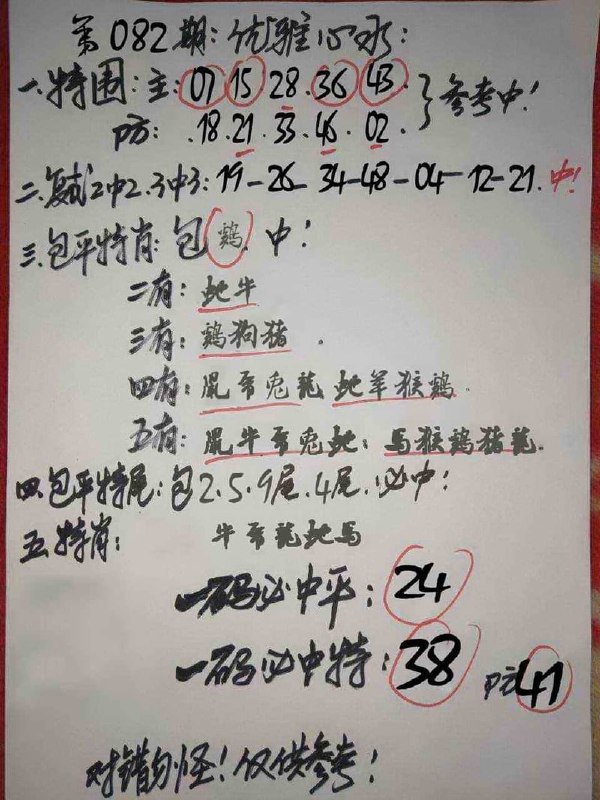 第082期:优雅心水:
一.特围:主:07 15 28.36 43
参考中!
防:.18.21.33.46.02.
二.复试2中2.3中3:19-26-34-48-04-12-21.中!
三.包平特肖:包鷄.中!
二有:蛇牛
三有:鷄狗猪.
四有:鼠虎兔龍 蛇羊猴鷄.
五有:鼠牛虎兔蛇:馬猴鷄猪龍.
四.包平特尾:包2.5.9尾.4尾.必中!
五.特肖:牛虎龍蛇馬
一码必中平:24
一码必中特:38 防41
对错勿怪!仅供参考!